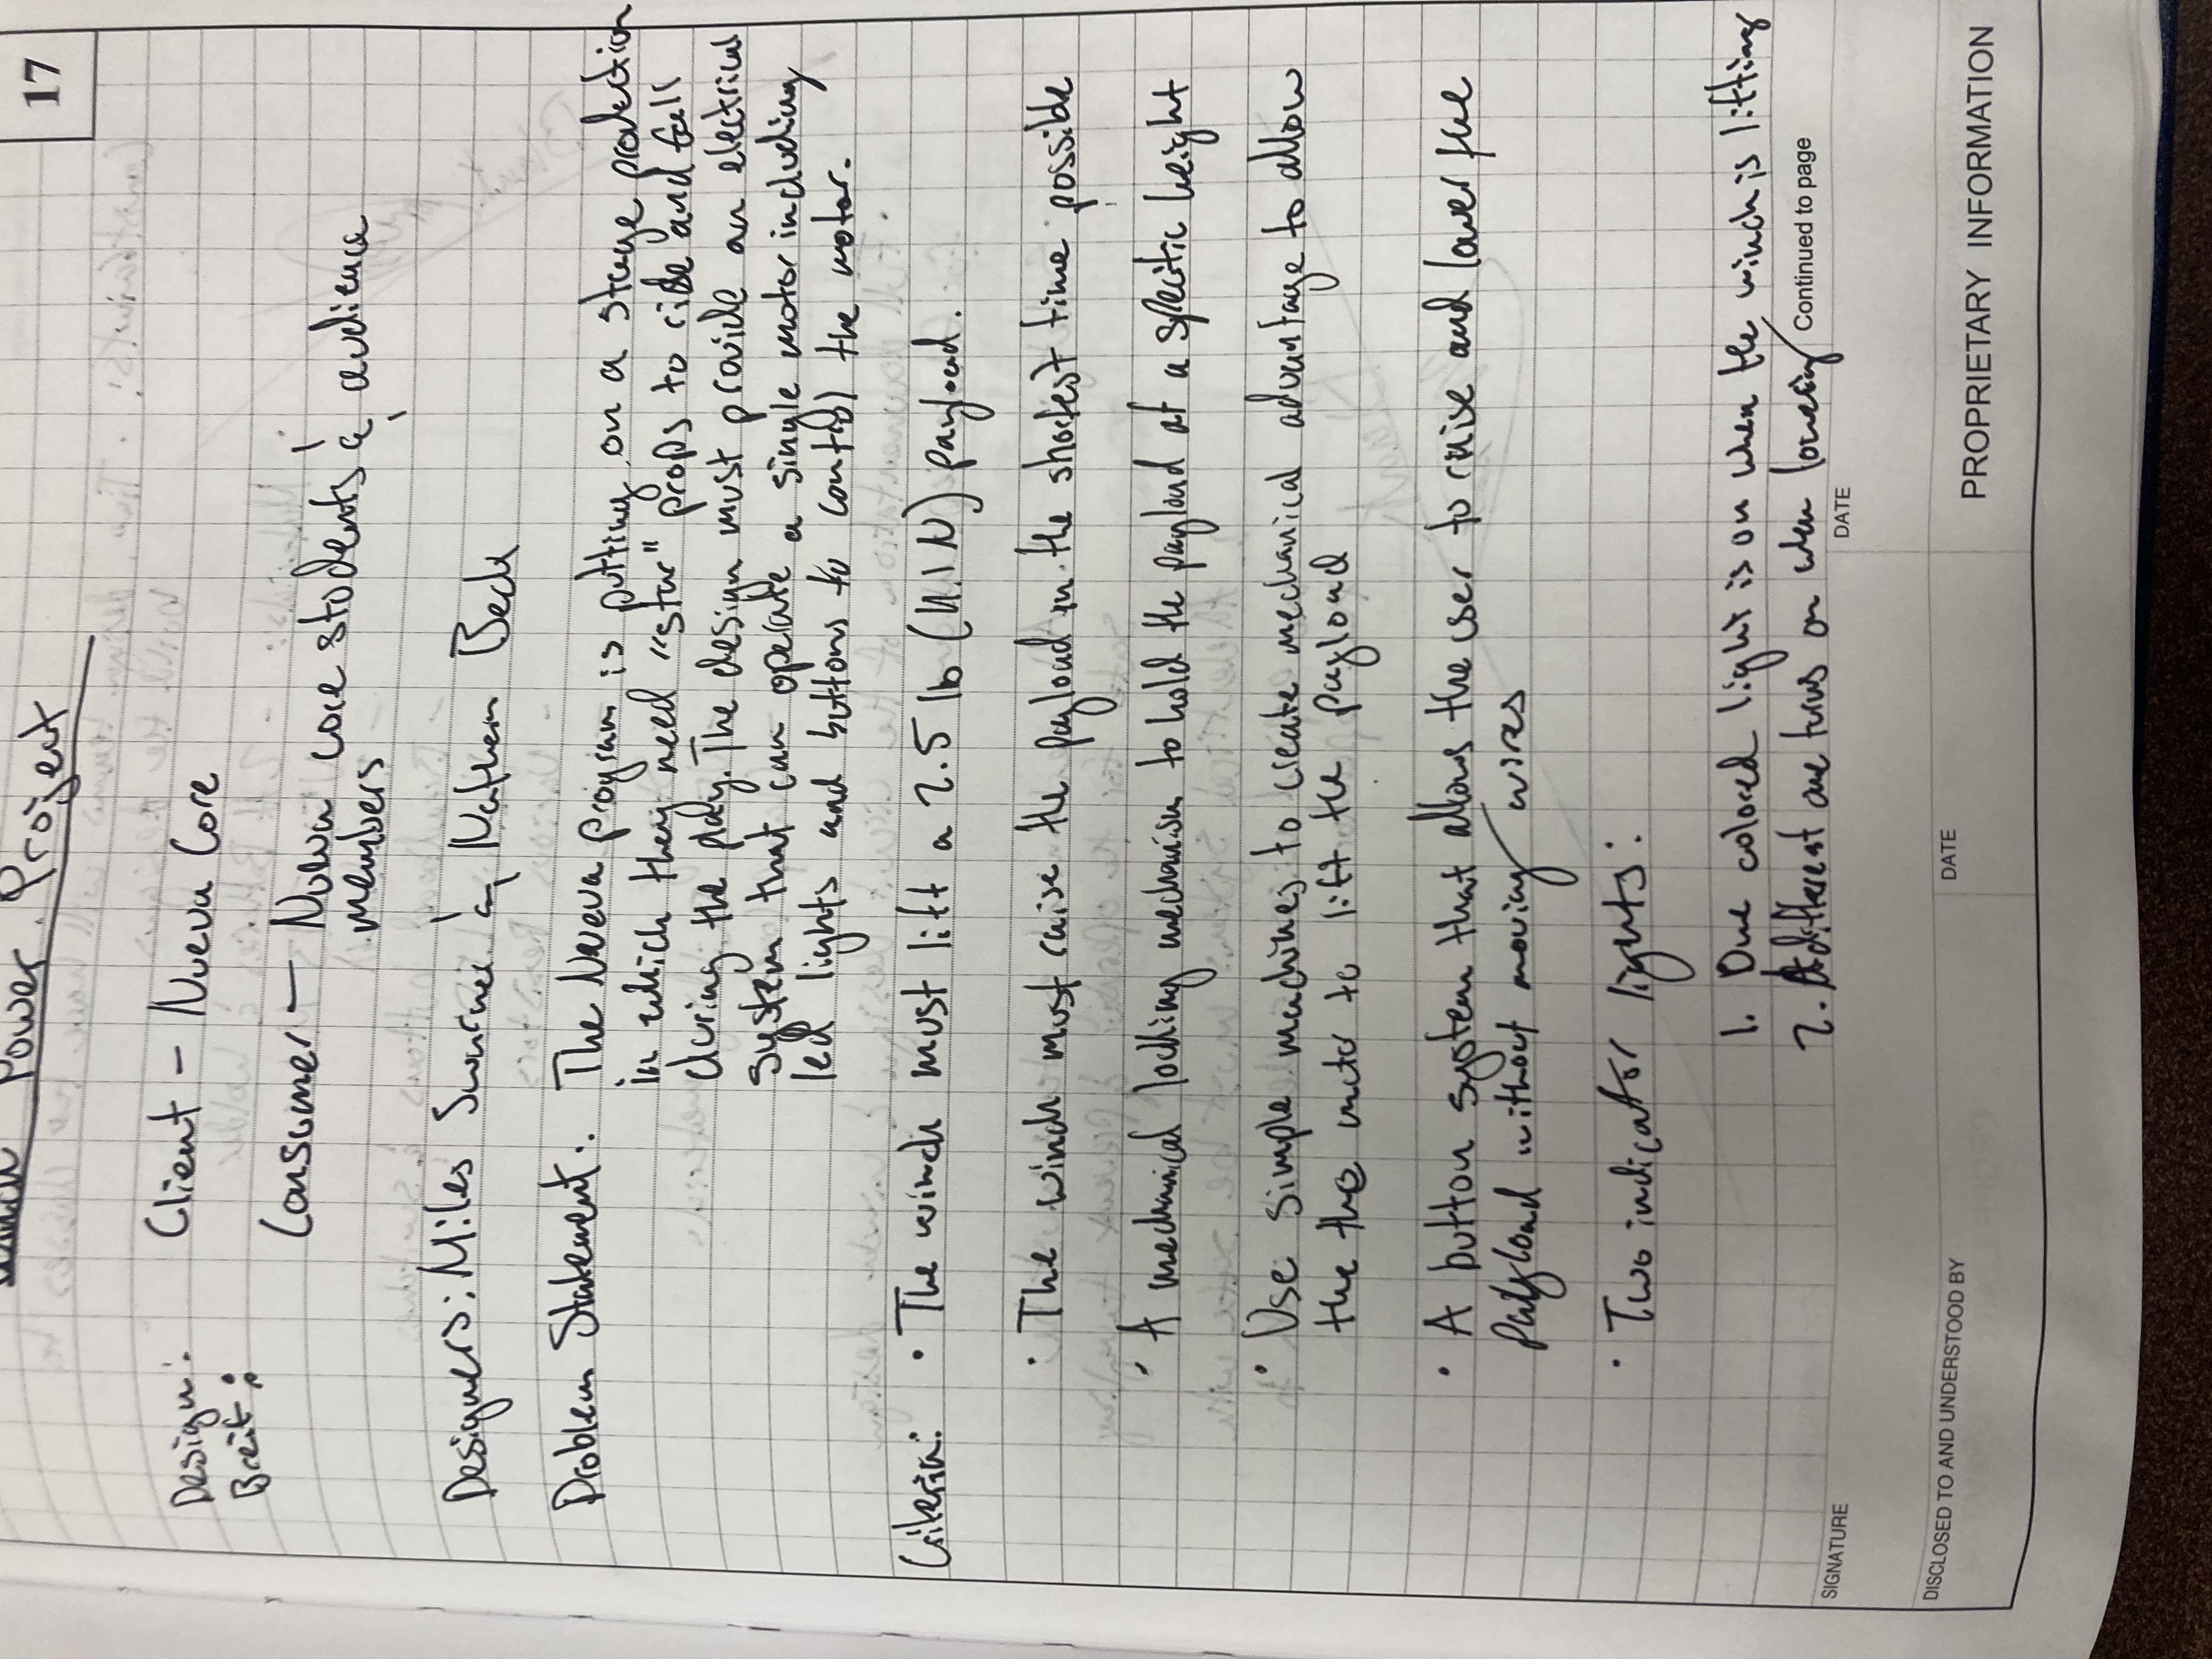 Power Project
17
Design Client – Nueva Core
Breif:
Consumer — Nueva core students & audience
members
Designers: Miles & Nathan Beck
Problem Statement: The Nueva program is putting on a stage production
in which they need "star" props to rise and fall
during the play. The design must provide an electrical
system that can operate a single motor including
led lights and buttons to control the motor.
Criteria: • The winch must lift a 2.5 lb (11.1 N) payload.
• The winch must raise the payload in the shortest time possible
• A mechanical locking mechanism to hold the payload at a specific height
• Use simple machines to create mechanical advantage to allow
the the motor to lift the payload
• A button system that allows the user to raise and lower the
payload without moving wires
• Two indicator lights:
1. One colored light is on when the winch is lifting
2. A different one turns on when lowering
Continued to page
SIGNATURE
DATE
DISCLOSED TO AND UNDERSTOOD BY
DATE
PROPRIETARY INFORMATION